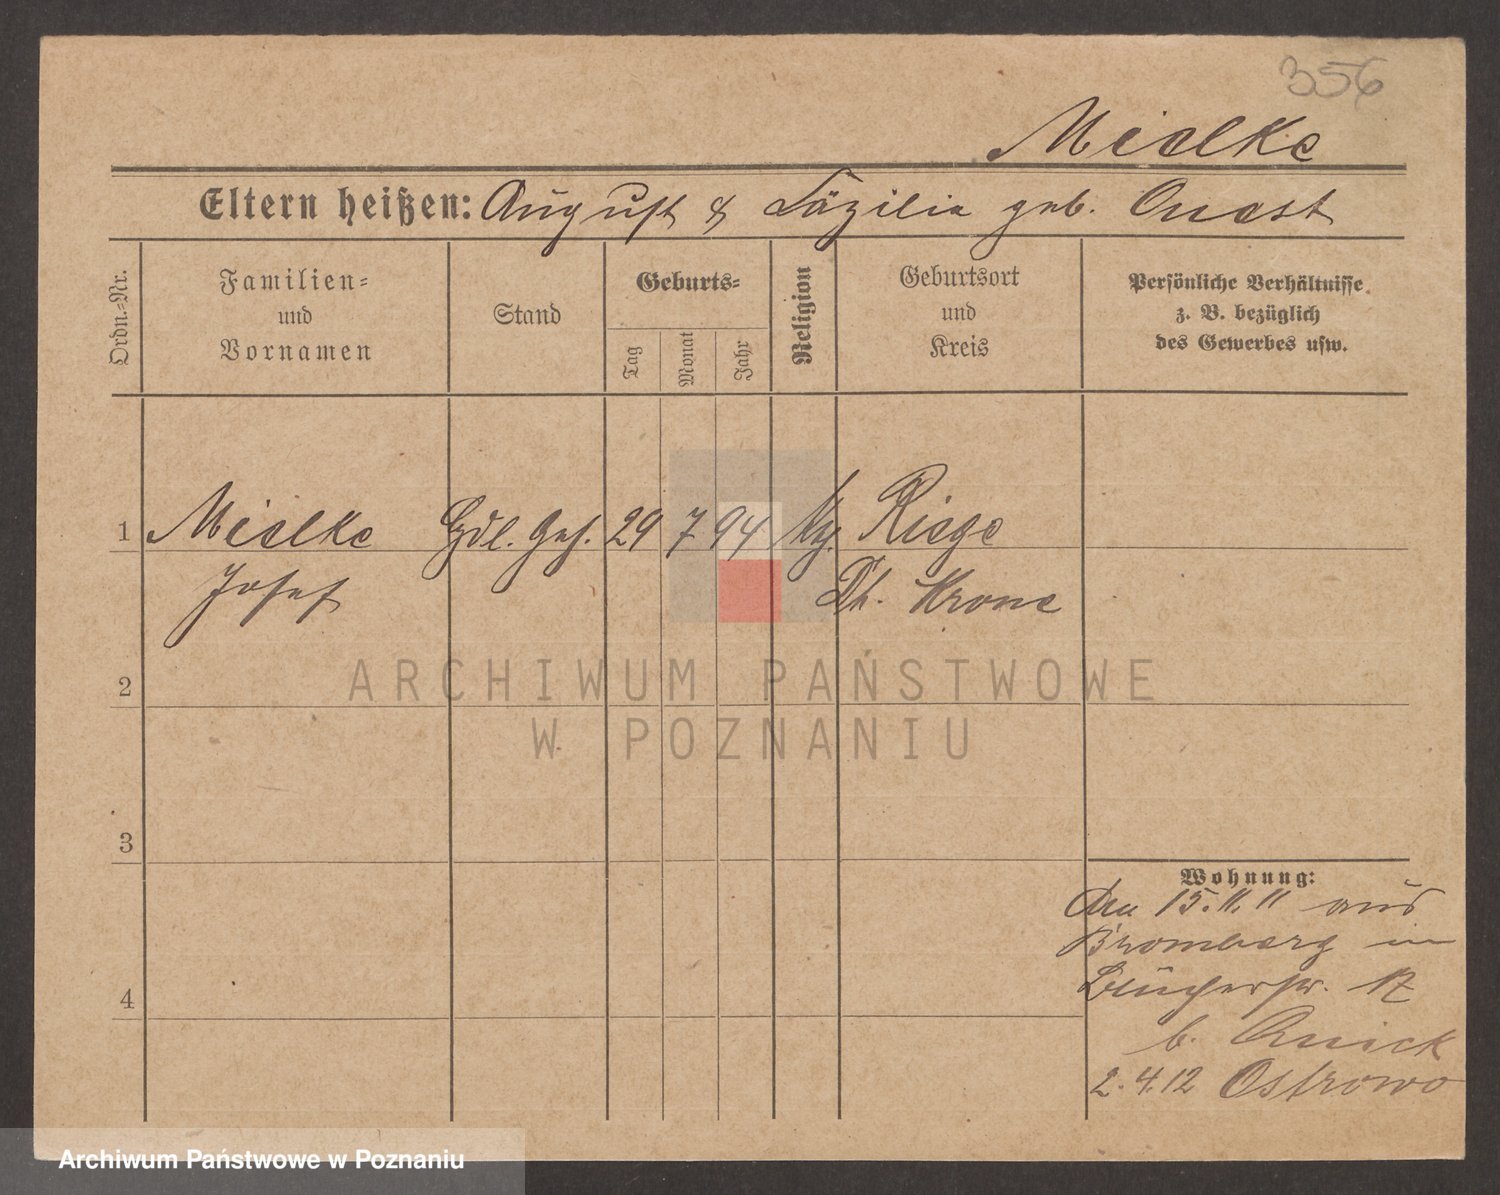 356
Mielke
Eltern heißen: August & Cäzilia geb. Quast
Ordn.-Nr.
Familien-
und
Vornamen
Stand
Geburts-
Tag
Monat
Jahr
Religion
Geburtsort
und
Kreis
Persönliche Verhältnisse
z. B. bezüglich
des Gewerbes usw.
1 Mielke Hdl. Geh. 29 7 94 Riege
Josef Dt. Krone
2
ARCHIWUM PAŃSTWOWE
W POZNANIU
3
Wohnung:
15.11.11 aus
Bromberg in
Blücherstr. 17
b. Quick
4
2.4.12 Ostrowo
Archiwum Państwowe w Poznaniu